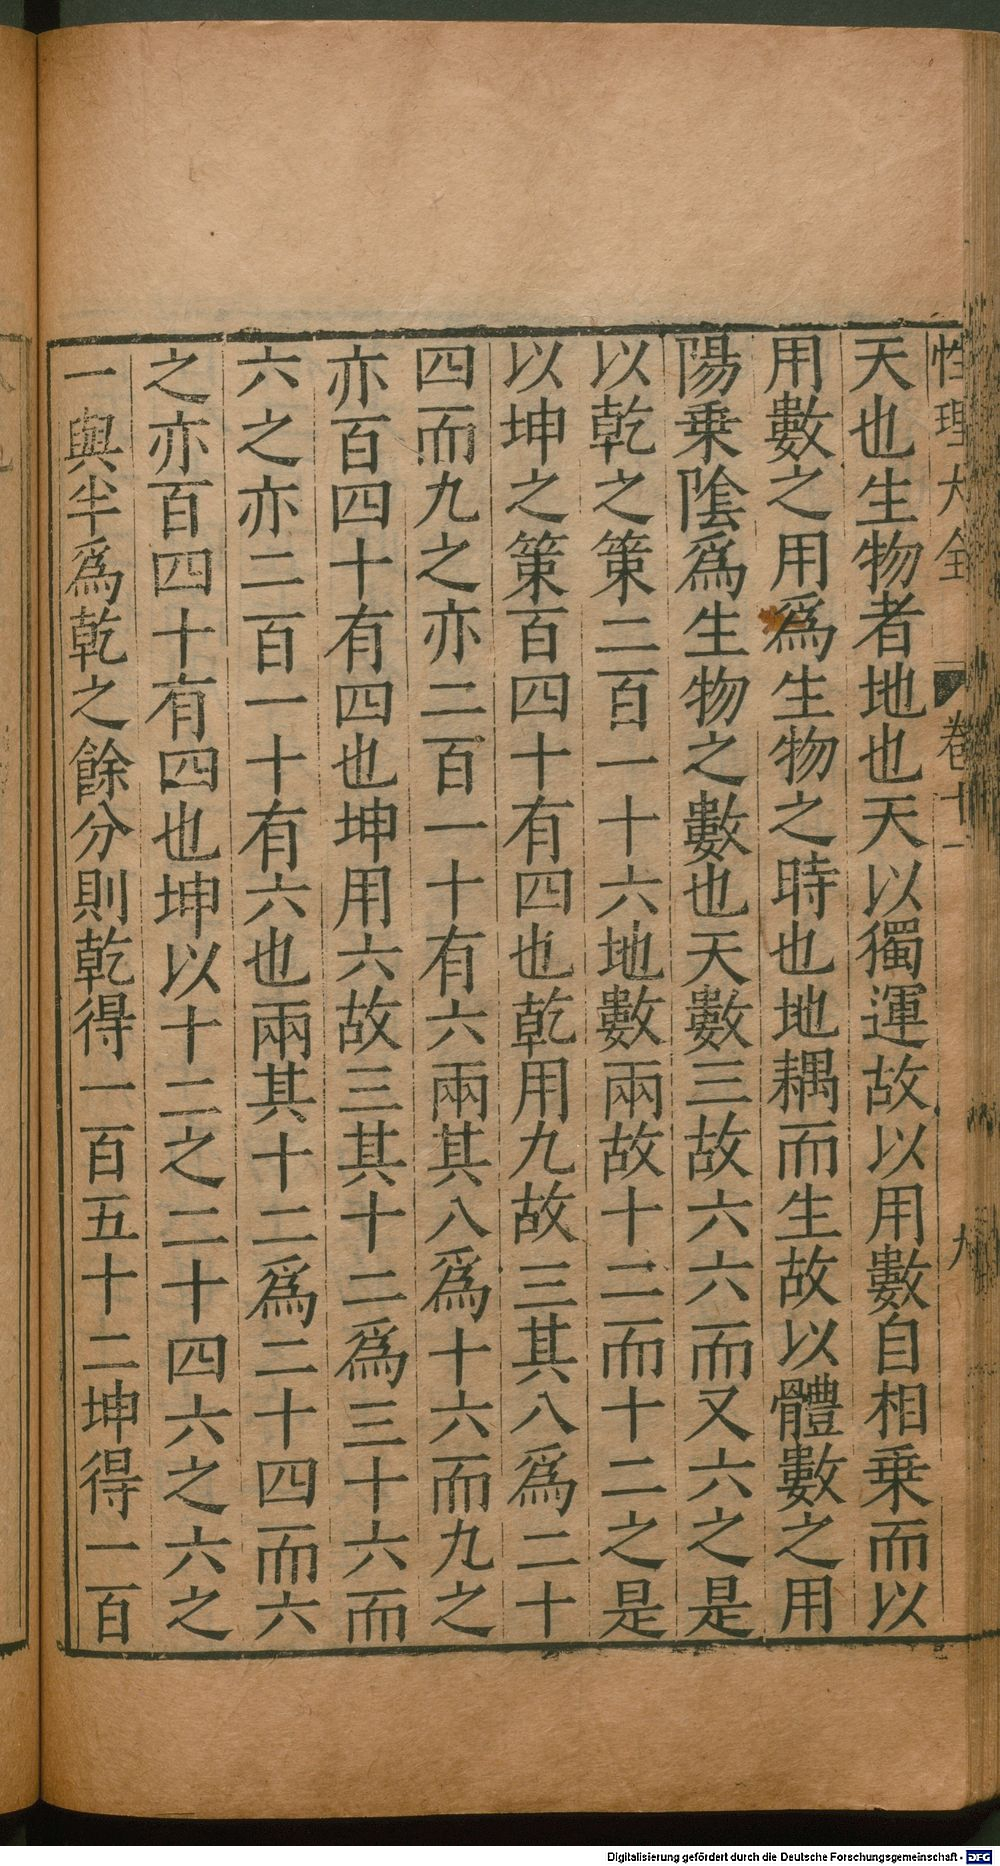 性理大全 卷十一 九
天也生物者地也天以獨運故以用數自相乗而以
用數之用爲生物之時也地耦而生故以體數之用
陽乗陰爲生物之數也天數三故六六而又六之是
以乾之策二百一十六地數兩故十二而十二之是
以坤之策百四十有四也乾用九故三其八爲二十
四而九之亦二百一十有六兩其八爲十六而九之
亦百四十有四也坤用六故三其十二爲三十六而
六之亦二百一十有六也兩其十二爲二十四而六
之亦百四十有四也坤以十二之二十四六之六之
一與半爲乾之餘分則乾得一百五十二坤得一百
Digitalisierung gefördert durch die Deutsche Forschungsgemeinschaft - DFG